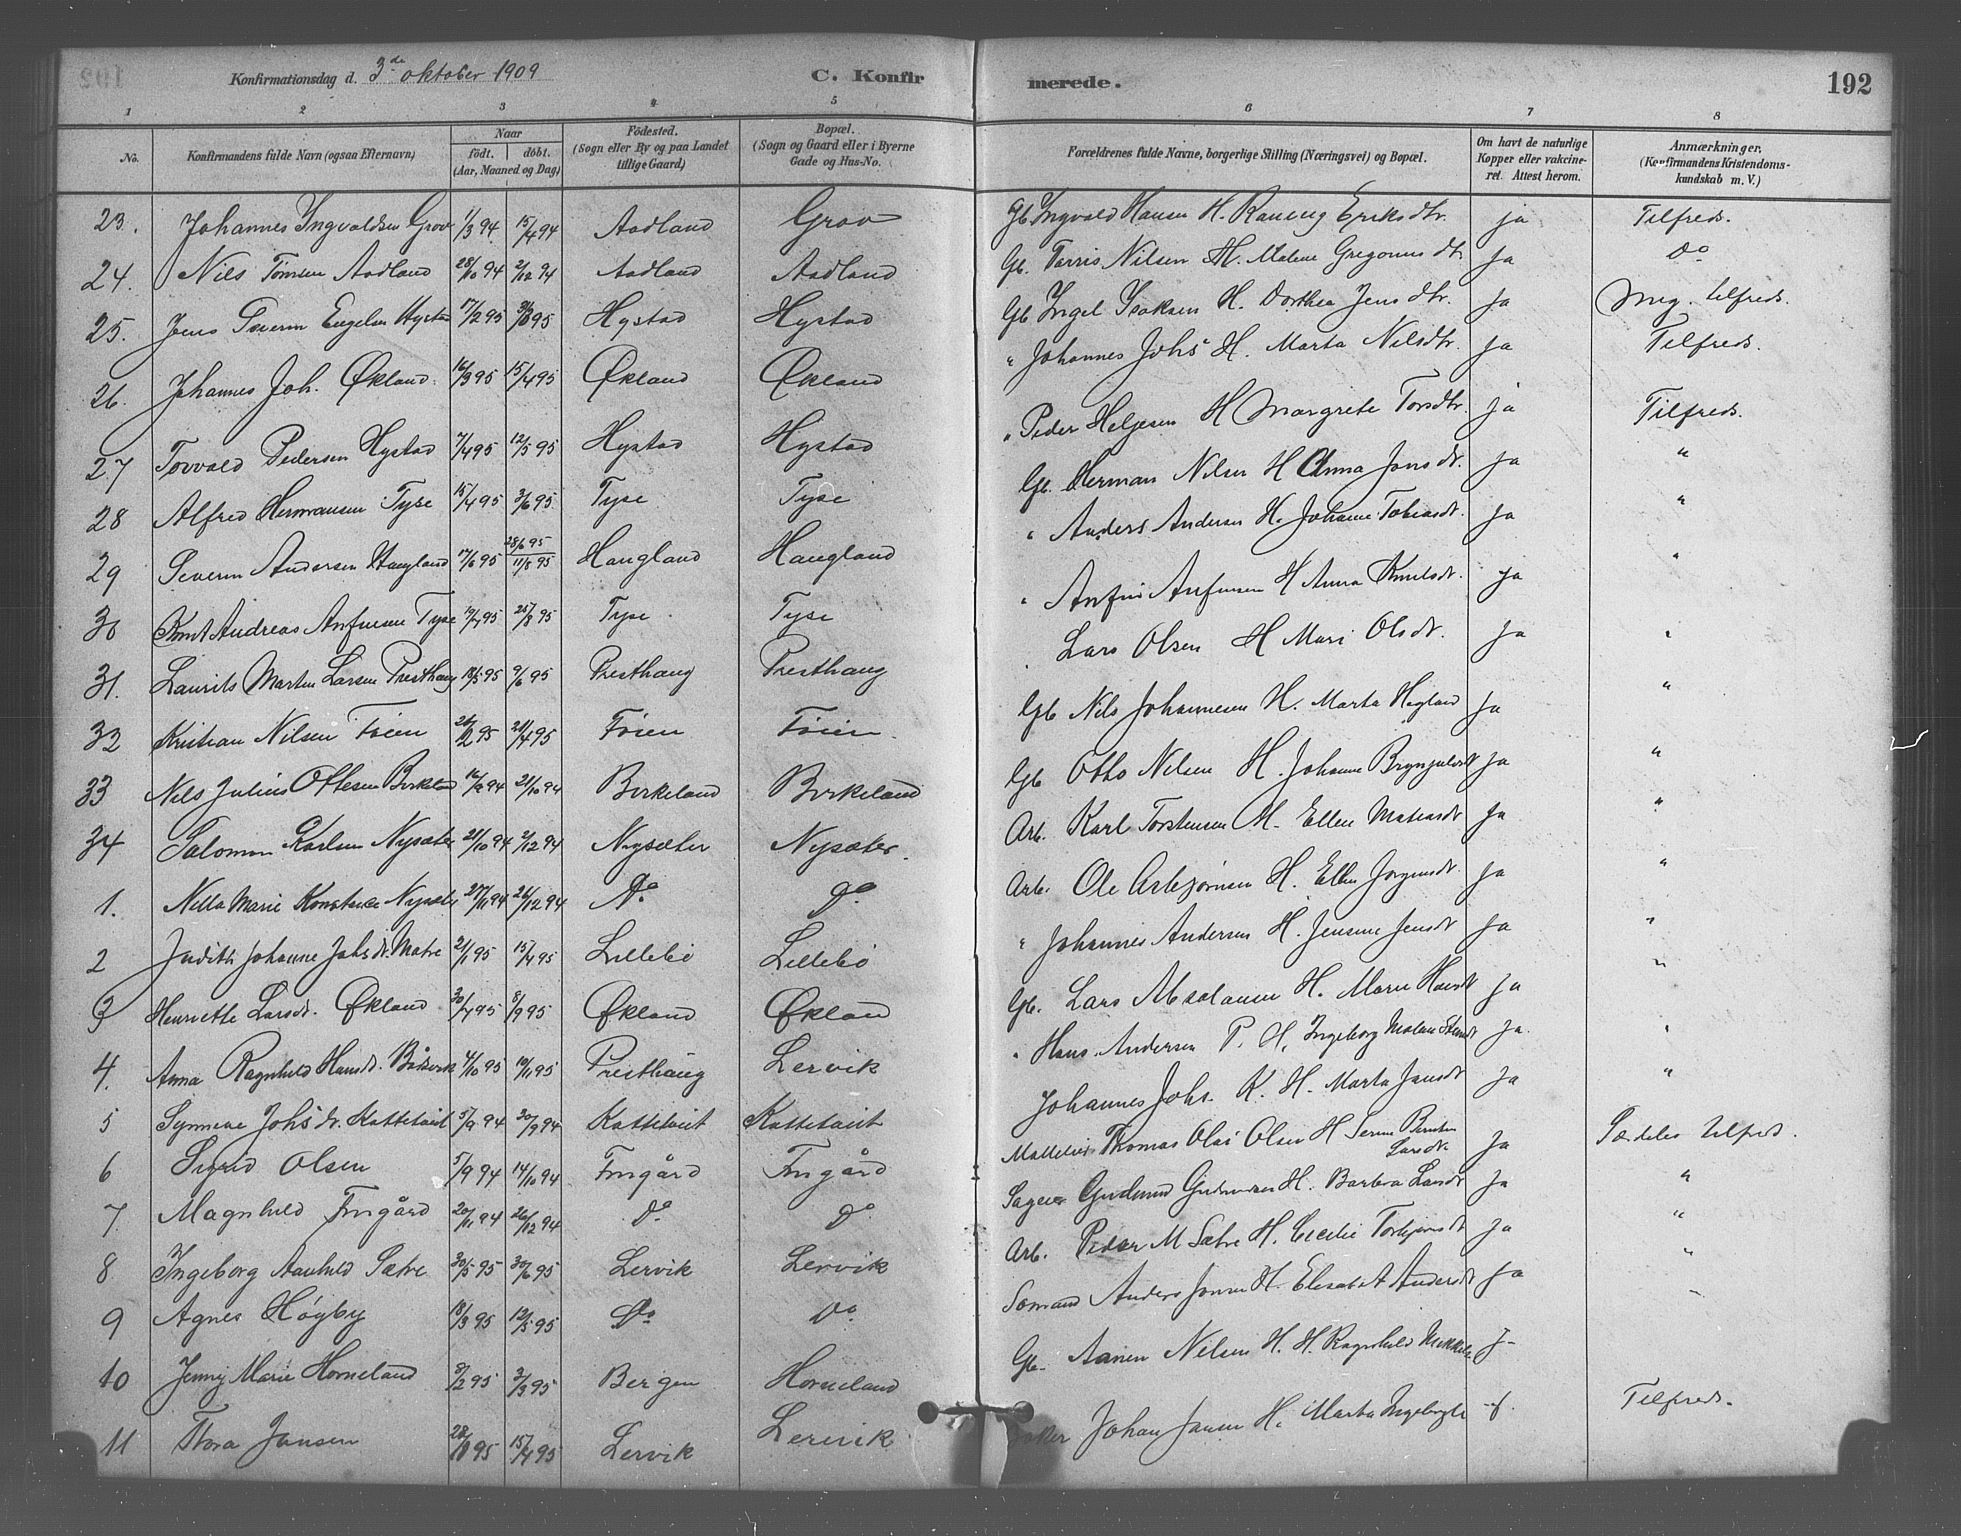 Konfirmationsdag d. 3de oktober 1909 C. Konfirmerede. 192
1 2 3 4 5 6 7 8
No. Konfirmandens fulde Navn (ogsaa Efternavn) Naar født. døbt. (Aar, Maaned og Dag) Födested. (Sogn eller By og paa Landet tillige Gaard) Bopæl. (Sogn og Gaard eller i Byerne Gade og Hus-No. Forældrenes fulde Navne, borgerlige Stilling (Næringsvei) og Bopæl. Om havt de naturlige Kopper eller vakcineret. Attest herom. Anmærkninger. (Konfirmandens Kristendomskundskab m. V.)
23. Johannes Ingvaldsen Grov 1/3 94 15/4 94 Aadland Grov Gb Ingvald Hansen H. Eriksdtr. ja Tilfreds.
24. Nils Aadland 28/10 94 2/12 94 Aadland Aadland Gb. Nilsen H. Malene dtr ja Do
25. Jens Hystad 17/2 95 95 Hystad Hystad Gb Isaksen H. Dorthea Jensdtr. ja Meg. tilfreds.
26. Johannes Joh. Økland 16/3 95 15/4 95 Økland Økland " Johannes Johs H. Marta Nilsdtr. ja Tilfreds.
27 Torvald Pedersen Hystad 7/4 95 12/5 95 Hystad Hystad " Peder Helgesen H Margrete Torsdtr. ja Tilfreds.
28 Alfred Hermansen Tyse 15/4 95 3/6 95 Tyse Tyse Gb. Herman Nilsen H Anna Jonsdt. ja "
29 Severin Andersen Haugland 17/6 95 28/6 95 11/8 95 Haugland Haugland " Anders Andersen H. Johanne Tobiasdt. ja "
30 Knut Andreas Anfinsen Tyse 95 25/8 95 Tyse Tyse " Anfin Anfinsen H Anna Knutsdt. ja "
31. Laurits Martin Larsen Presthaug 95 9/6 95 Presthaug Presthaug Lars Olsen H Mari Olsdt. ja "
32 Kristian Nilsen Töien 95 21/4 95 Töien Töien Gb Nils Johannesen H. Marta Hegland ja "
33 Nils Julius Ottesen Birkeland 94 21/10 94 Birkeland Birkeland Gb Otto Nilsen H. Johanne ja "
34 Salomon Karlsen Nysæter 21/10 94 2/12 94 Nysæter Nysæter. Arb. Karl Torstensen H. Ellen Matiasdt ja "
1. Nella Marie Konstance Nysæter 27/11 94 26/12 94 Do Do Arb. Ole H. Ellen ja "
2 Judith Johanne Johsdt. Matre 21/1 95 15/4 95 Lillebö Lillebö " Johannes Andersen H. Jensine Jensdt ja "
3 Henriette Larsdt. Økland 95 8/9 95 Økland Økland Gb. Lars H. Marie ja "
4. Anna Ragnhild Hansdt. 4/10 95 10/11 95 Presthaug Lervik " Hans Andersen P. H. Ingeborg Malene ja. "
5 Synneve Johsdr. Kattetveit 5/9 94 30/9 94 Kattetveit Kattetveit Johannes Johs. K. H. Marta Jansdt ja "
6 Sigrid Olsen 5/9 94 14/10 94 Frugård Frugård Thomas Olai Olsen H Larsdt. ja Særdeles tilfreds.
7 Magnhild Frugård 20/11 94 26/12 94 Do Do Gudmund Gudmundsen H. Barbra Larsdt ja "
8 Ingeborg Sætre 30/5 95 30/6 95 Lervik Lervik Arb. Peder M Sætre H. Cecilie ja "
9 Agnes Høyby 18/3 95 12/5 95 Do Do Sømand Anders Jonsen H. Elisabet Andersdt ja "
10 Jenny Marie Horneland 8/2 95 3/3 95 Bergen Horneland Gb. Nilsen H. H. Ragnhild ja
11 Thora Jansen 95 15/4 95 Lervik Lervik Johan Jansen H. Marta Tilfreds.